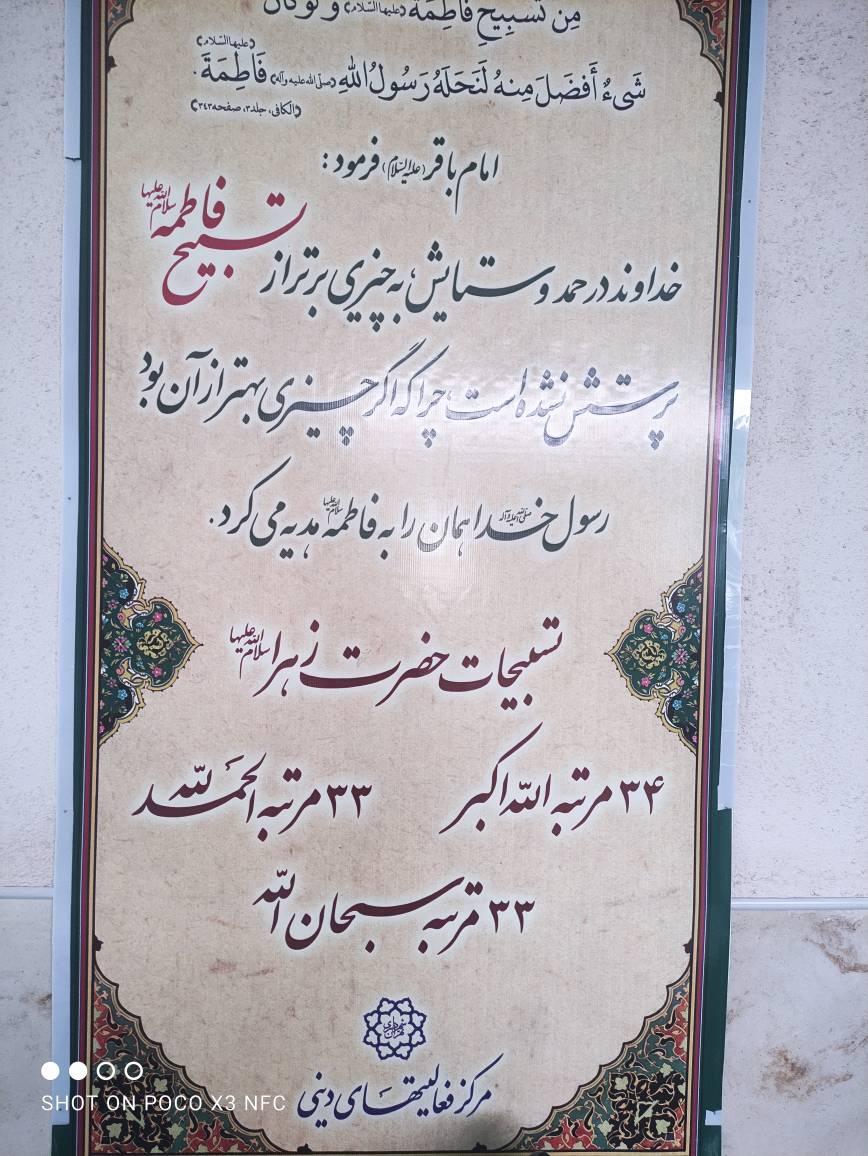 مِن تَسبِيحِ فَاطِمَةَ (علیها السّلام) وَ لَو كَانَ
شَیءٌ أَفضَلَ مِنهُ لَنَحَلَهُ رَسُولُ اللهِ (صلّی الله علیه وآله) فَاطِمَةَ (علیها السّلام).
(الکافی، جلد۳، صفحه۳۴۳)
امام باقر (علیه السّلام) فرمود:
خداوند در حمد و ستایش، به چیزی برتر از تسبیح فاطمه سلام الله علیها
پرستش نشده است، چرا که اگر چیزی بهتر از آن بود
رسول خدا صلی الله علیه و آله همان را به فاطمه سلام الله علیها هدیه می کرد.
تسبیحات حضرت زهرا سلام الله علیها
۳۴ مرتبه الله اکبر ۳۳ مرتبه الحمد لله
۳۳ مرتبه سبحان الله
مرکز فعالیتهای دینی
SHOT ON POCO X3 NFC